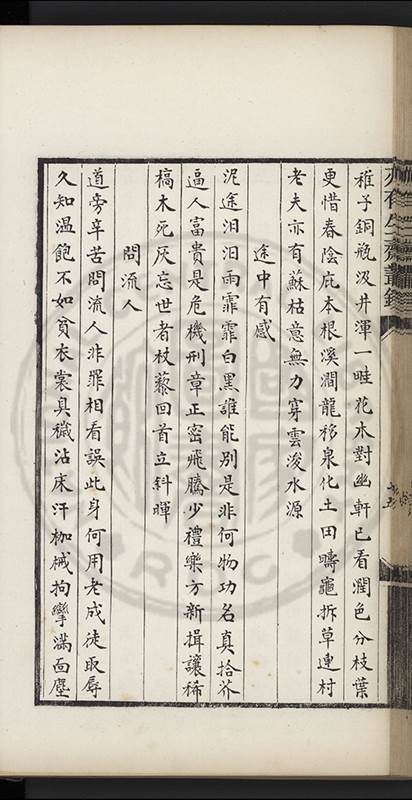 稚子銅瓶汲井渾一畦花木對幽軒已看潤色分枝葉
更惜春陰庇本根溪澗龍移泉化土田疇龜拆草連村
老夫亦有蘇枯意無力穿雲浚水源
途中有感
泥途汨汨雨霏霏白黑誰能別是非何物功名真拾芥
逼人富貴是危機刑章正密飛騰少禮樂方新揖讓稀
槁木死灰忘世者杖藜回首立斜暉
問流人
道旁辛苦問流人非罪相看誤此身何用老成徒取辱
久知温飽不如貧衣裳臭穢沾床汗枷械拘攣滿面塵